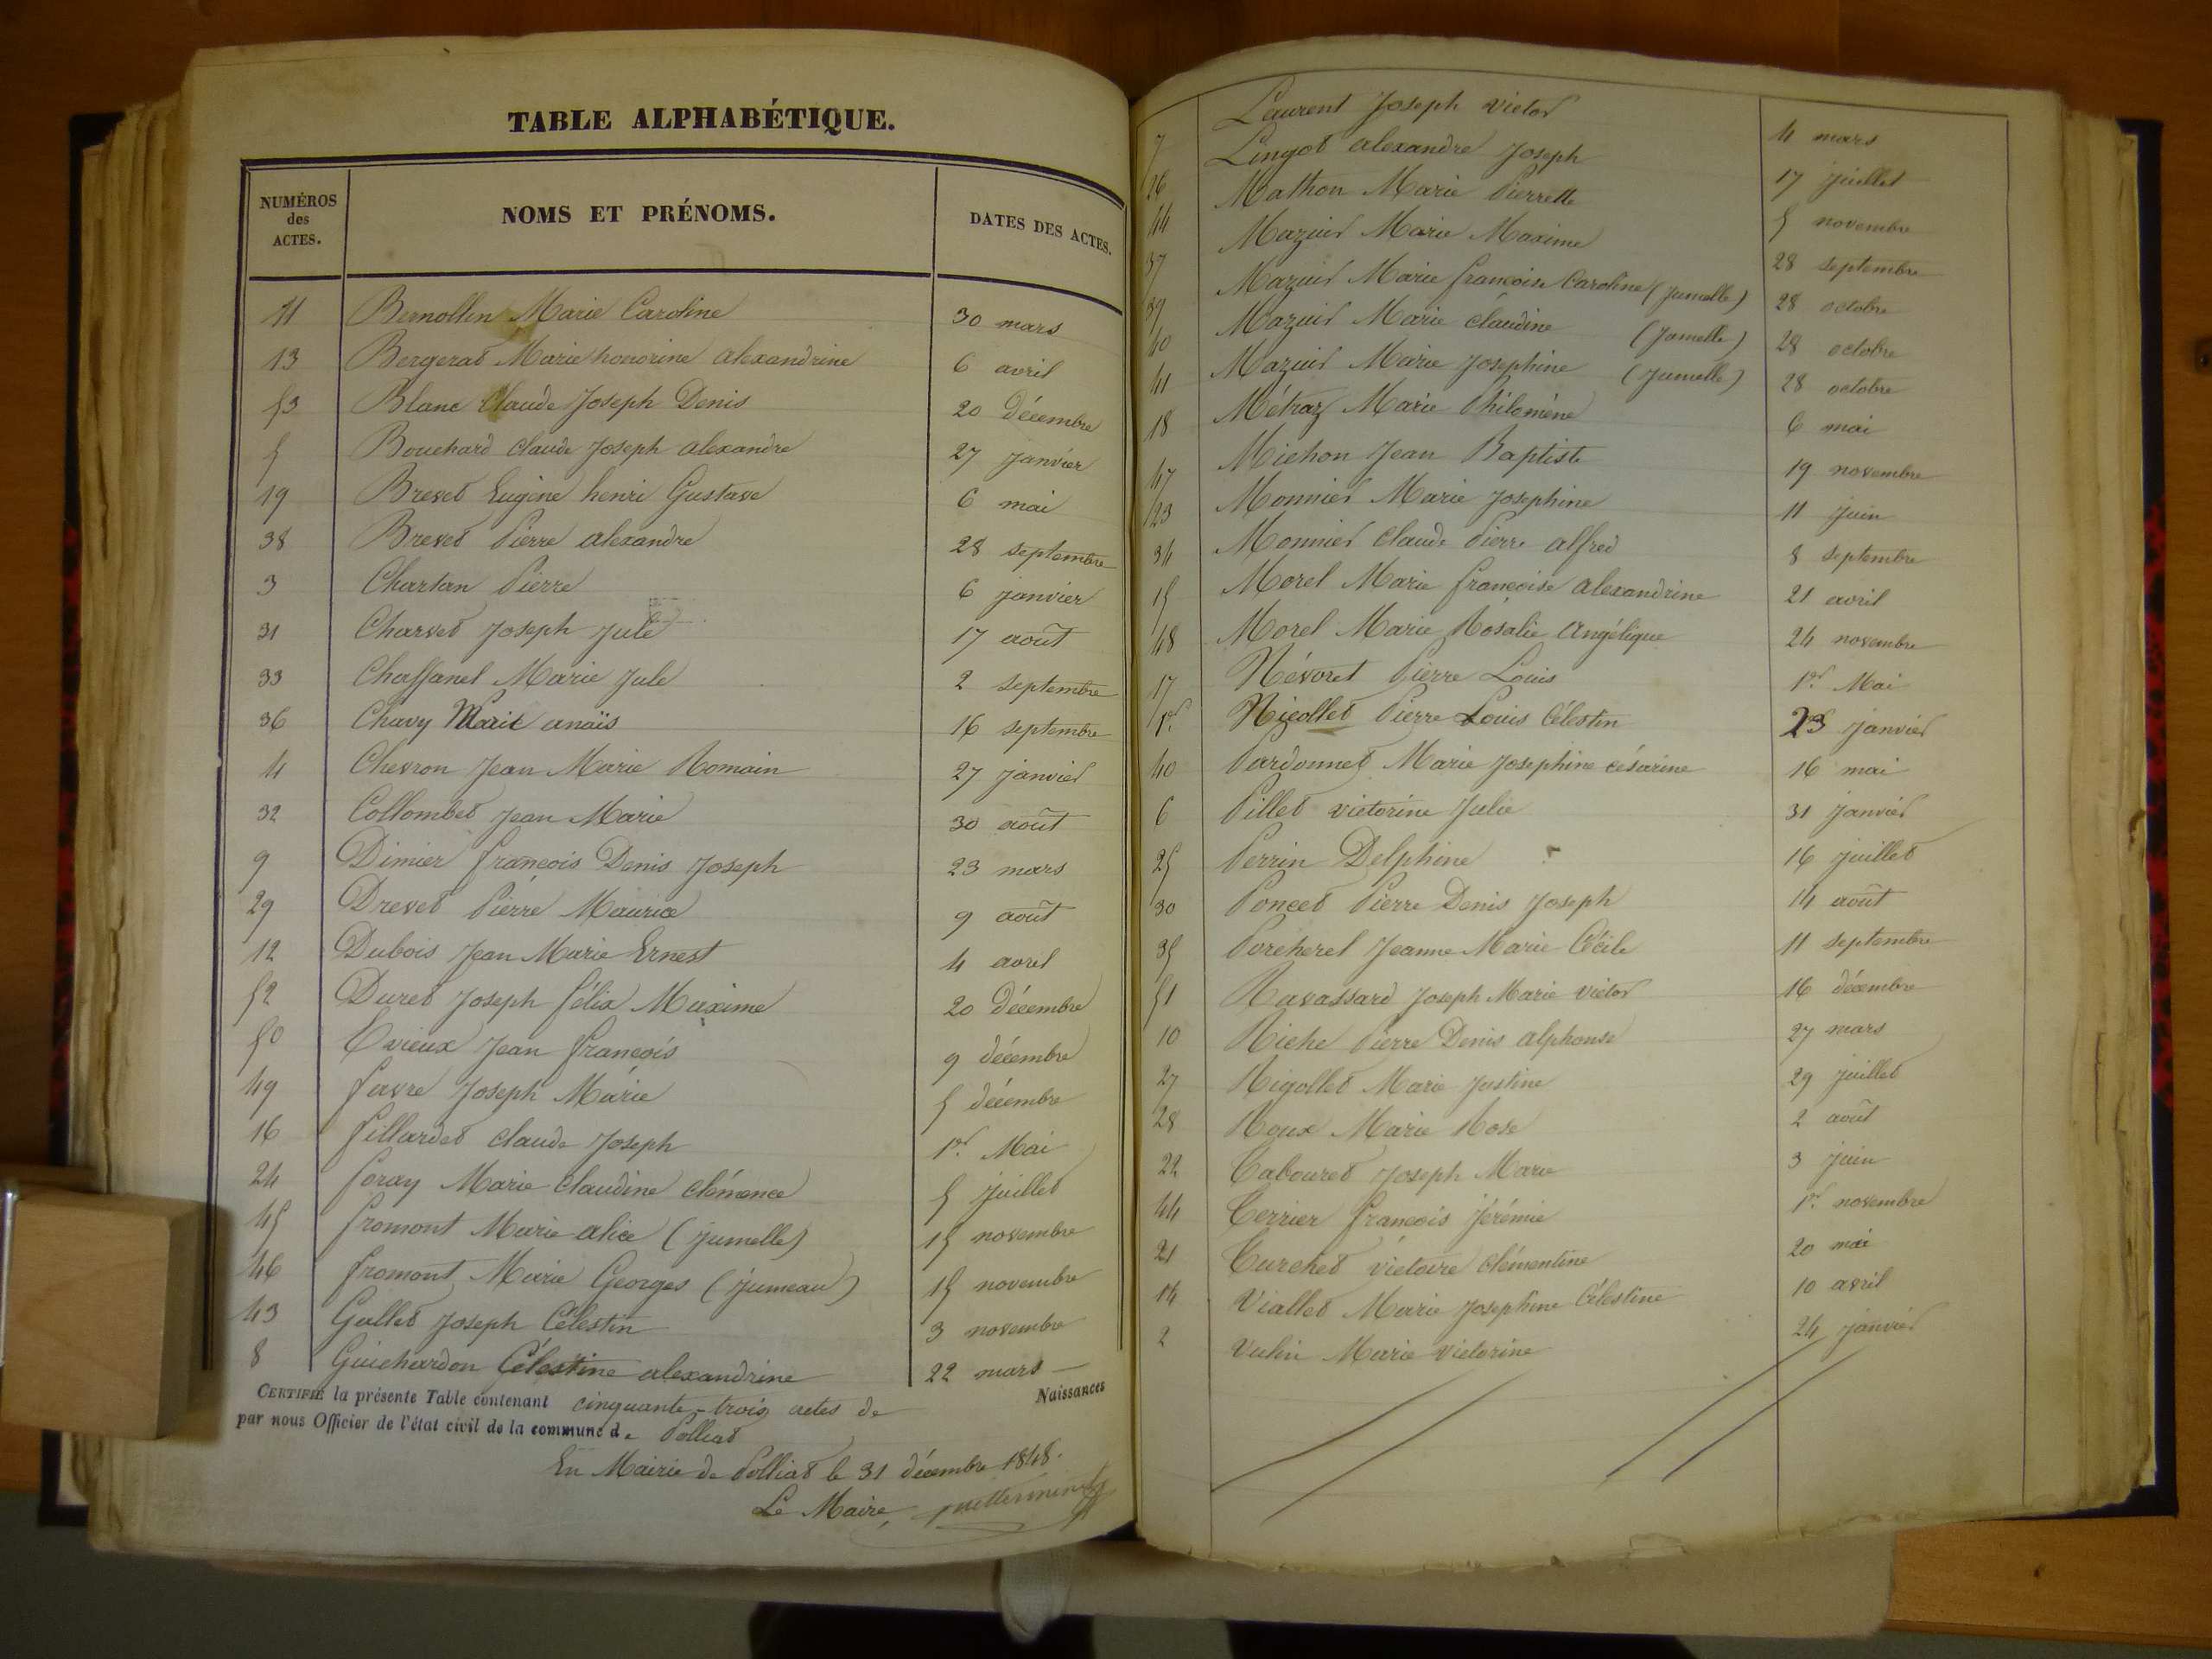 TABLE ALPHABÉTIQUE.
NUMÉROS des ACTES. NOMS ET PRÉNOMS. DATES DES ACTES.
11 Bernollin Marie Caroline 30 mars
13 Bergerat Marie honorine alexandrine 6 avril
53 Blanc Claude Joseph Denis 20 Décembre
5 Bouchard Claude Joseph alexandre 27 Janvier
19 Brevet Eugène henri Gustave 6 mai
38 Brevet Pierre alexandre 28 septembre
3 Chartan Pierre 6 janvier
31 Charvet Joseph Jule 17 août
33 Chaffanel Marie Jule 2 septembre
36 Chavy Marie anaïs 16 septembre
4 Chevron Jean Marie Romain 27 janvier
32 Collombet Jean Marie 30 août
9 Dimier françois Denis Joseph 23 mars
29 Drevet Pierre Maurice 9 août
12 Dubois Jean Marie Ernest 4 avrel
52 Duret Joseph félix Maxime 20 Décembre
50 Evieux Jean françois 9 décembre
49 favre Joseph Marie 5 décembre
16 fillardet claude Joseph 1er Mai
24 foray Marie claudine clémence 5 Juillet
45 fromont Marie alice (jumelle) 15 novembre
46 fromont Marie Georges (jumeau) 15 novembre
43 Gallet Joseph Célestin 3 novembre
8 Guichardon Célestine alexandrine 22 mars
CERTIFIÉ la présente Table contenant cinquante-trois actes de Naissances
par nous Officier de l'état civil de la commune de Polliat
En Mairie de Polliat le 31 décembre 1848.
Le Maire,
7 Laurent Joseph victor 4 mars
26 Lingot alexandre Joseph 17 Juillet
44 Mathon Marie Pierrette 5 novembre
37 Mazuir Marie Maxime 28 septembre
39 Mazuir Marie françoise Caroline (Jumelle) 28 octobre
40 Mazuir Marie claudine (Jumelle) 28 octobre
41 Mazuir Marie Josephine (Jumelle) 28 octobre
18 Métraz Marie Philomène 6 mai
47 Michon Jean Baptiste 19 novembre
23 Monnier Marie Josephine 11 Juin
34 Monnier Claude Pierre alfred 8 septembre
15 Morel Marie françoise alexandrine 21 avril
48 Morel Marie Rosalie Angélique 24 novembre
17 Névoret Pierre Louis 1er Mai
1er Nicollet Pierre Louis Célestin 23 Janvier
40 Pardonnet Marie Josephine césarine 16 mai
6 Pillet victorine Julie 31 Janvier
25 Perrin Delphine 16 juillet
30 Poncet Pierre Denis Joseph 14 août
35 Porcherel Jeanne Marie Cécile 11 septembre
51 Ravassard Joseph Marie victor 16 décembre
10 Riche Pierre Denis alphonse 27 mars
27 Rigollet Marie Justine 29 juillet
28 Roux Marie Rose 2 août
22 Tabouret Joseph Marie 3 Juin
44 Terrier françois Jérémie 1er novembre
21 Turchet victoire clémentine 20 mai
14 Viallet Marie Josephine Célestine 10 avril
2 Vuhin Marie victorine 24 janvier